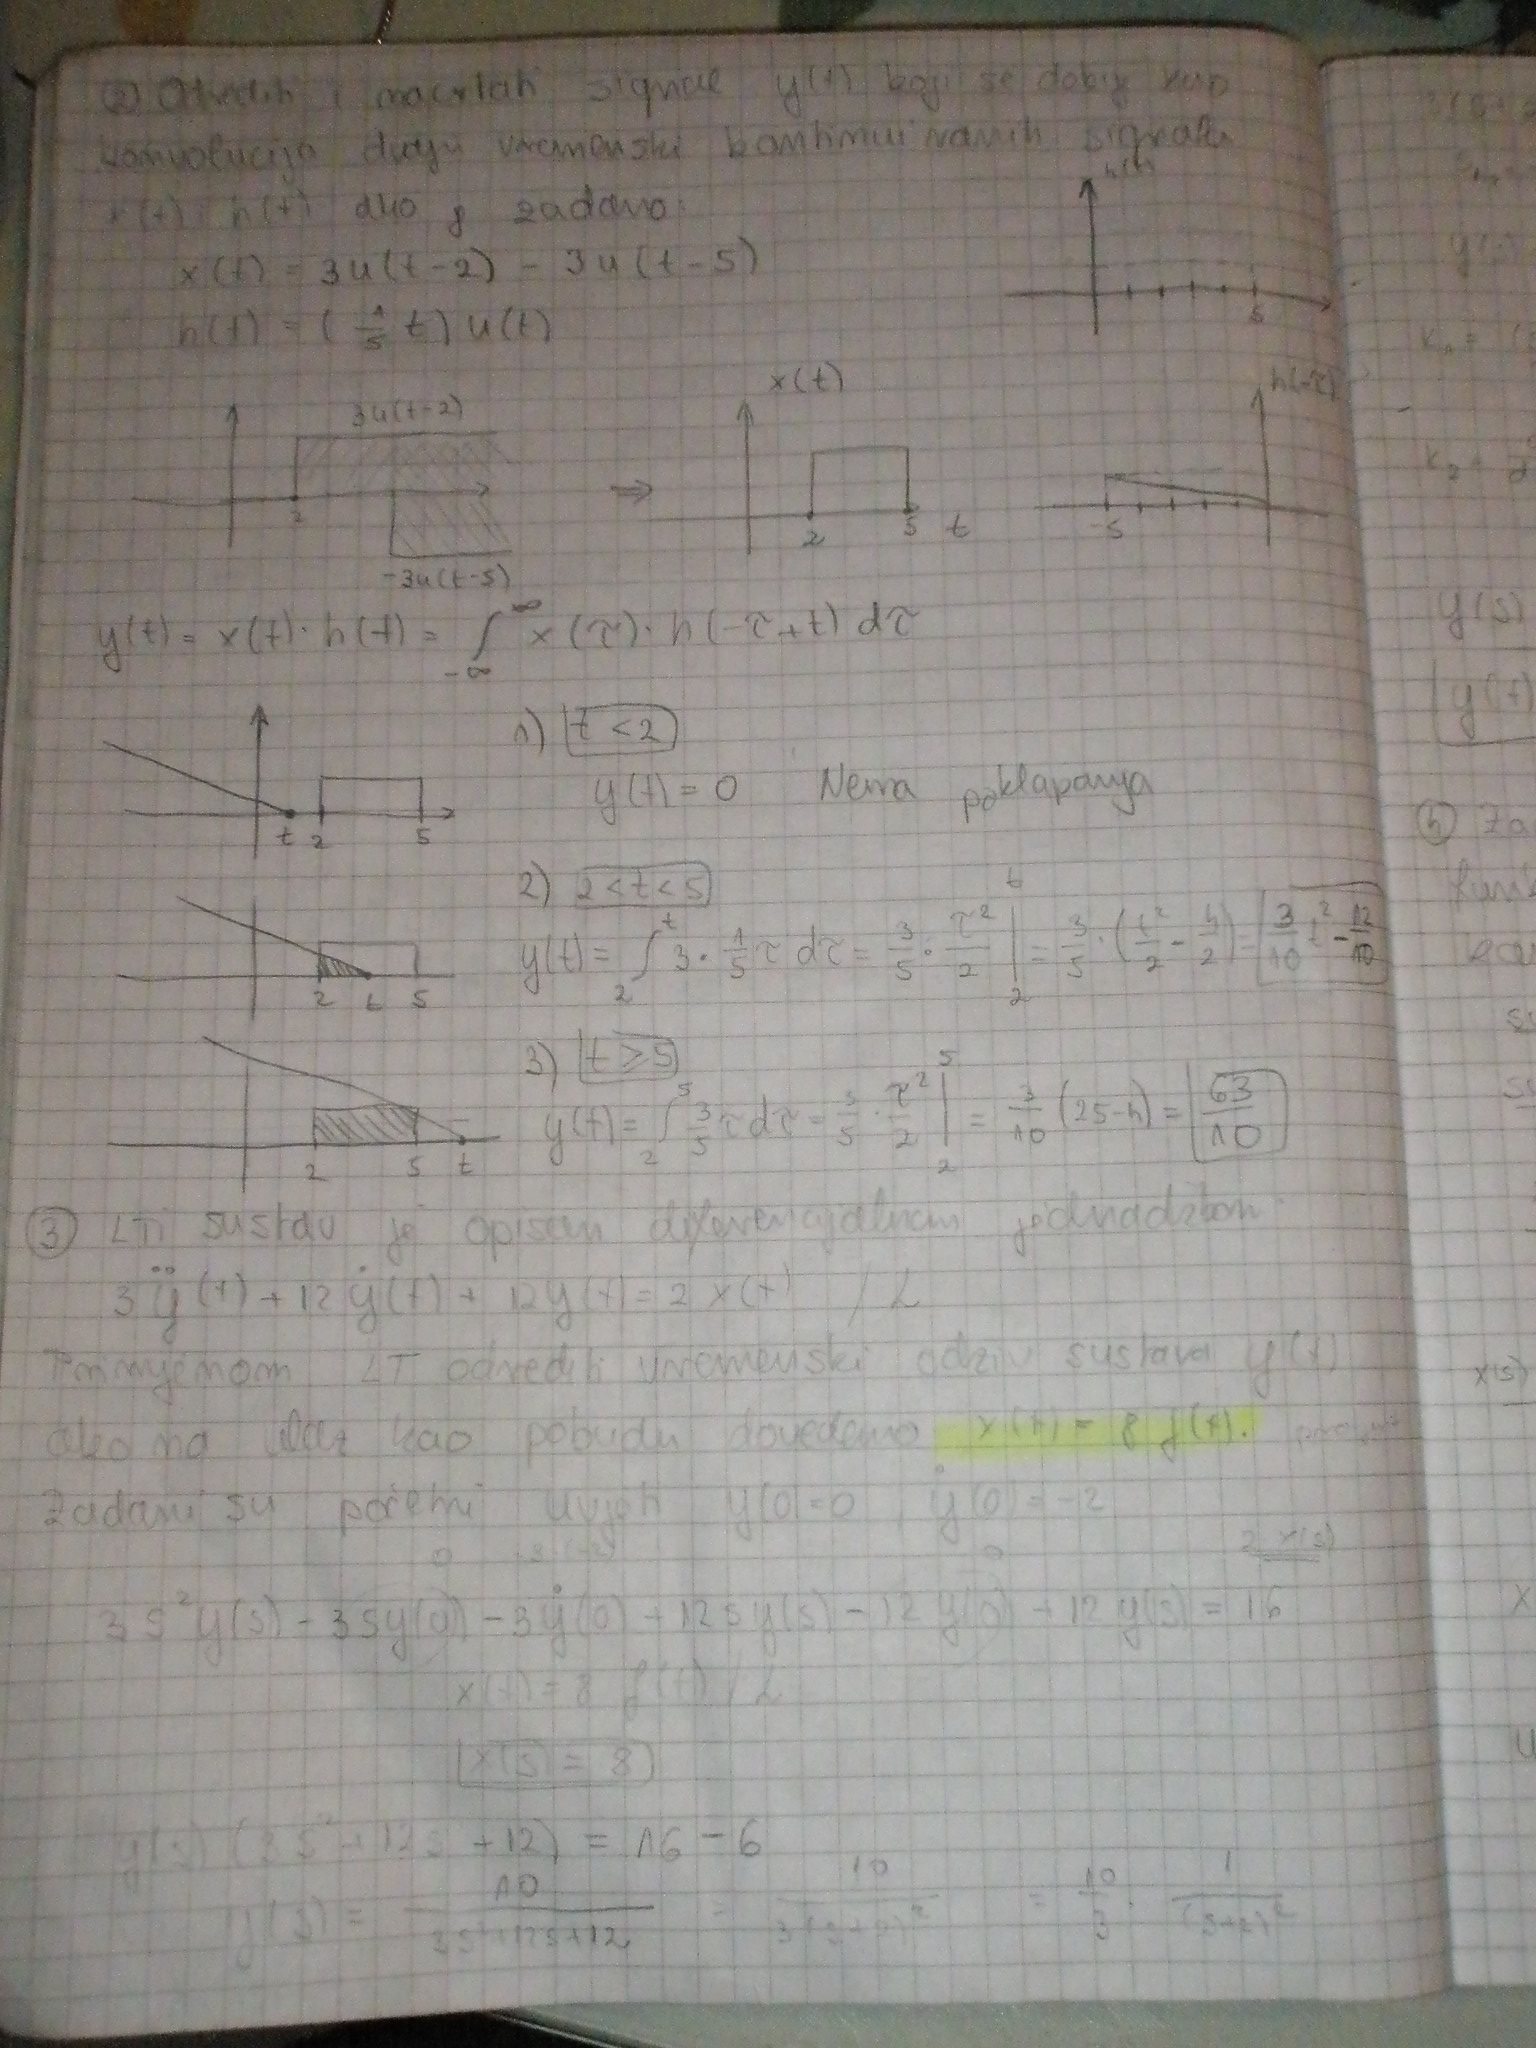 ② Odrediti i nacrtati signal y(t) koji se dobije kao
konvolucija dvaju vremenski kontinuiranih signala
x(t) i h(t) ako je zadano:
x(t) = 3u(t-2) - 3u(t-5)
h(t) = (1/5 t) u(t)
h(t)
5
3u(t-2)
2
-3u(t-5)
⇒
x(t)
2 5 t
h(-τ)
-5
y(t) = x(t) · h(t) = ∫_{-∞}^{∞} x(τ) · h(-τ+t) dτ
1) t < 2
y(t) = 0 Nema poklapanja
t 2 5
2) 2 < t < 5
y(t) = ∫_2^t 3 · 1/5 τ dτ = 3/5 · τ²/2 |_2^t = 3/5 · (t²/2 - 4/2) = 3/10 t² - 12/10
2 t 5
3) t ≥ 5
y(t) = ∫_2^5 3/5 τ dτ = 3/5 · τ²/2 |_2^5 = 3/10 (25-4) = 63/10
2 5 t
③ LTI sustav je opisan diferencijalnom jednadžbom
3ÿ(t) + 12ẏ(t) + 12y(t) = 2x(t) / L
Primjenom LT odrediti vremenski odziv sustava y(t)
ako na ulaz kao pobudu dovedemo x(t) = 8 δ(t).
Zadani su početni uvjeti y(0)=0, ẏ(0) = -2
0 -3·(-2) 0 2·x(s)
3s²y(s) - 3sy(0) - 3ẏ(0) + 12sy(s) - 12y(0) + 12y(s) = 16
x(t) = 8 δ(t) / L
x(s) = 8
y(s) (3s² + 12s + 12) = 16 - 6
y(s) = 10/(3s²+12s+12) = 10/(3(s+2)²) = 10/3 · 1/(s+2)²
y(s)
y(t)